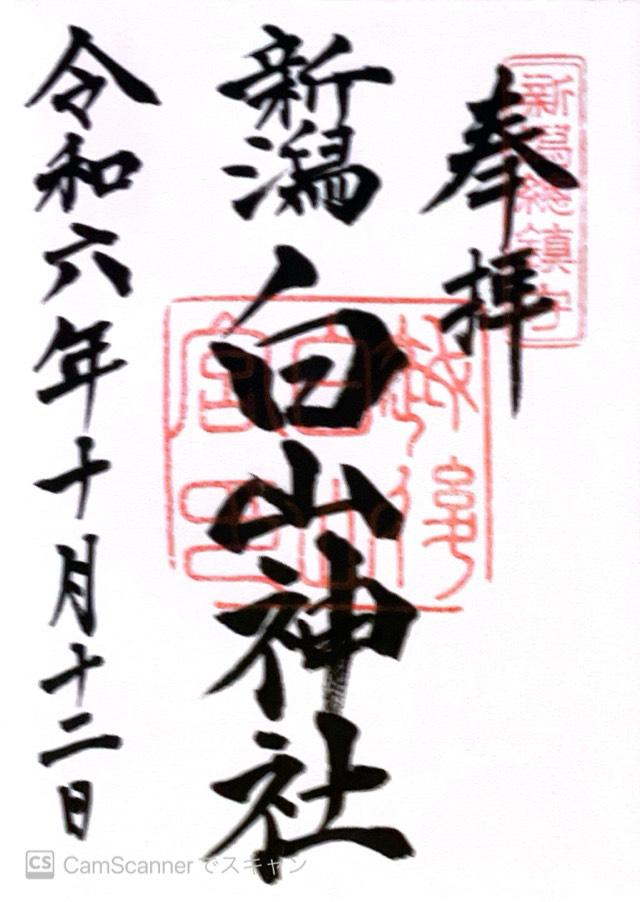 奉拝
新潟総鎮守
新潟白山神社
令和六年十月十二日
CS CamScannerでスキャン